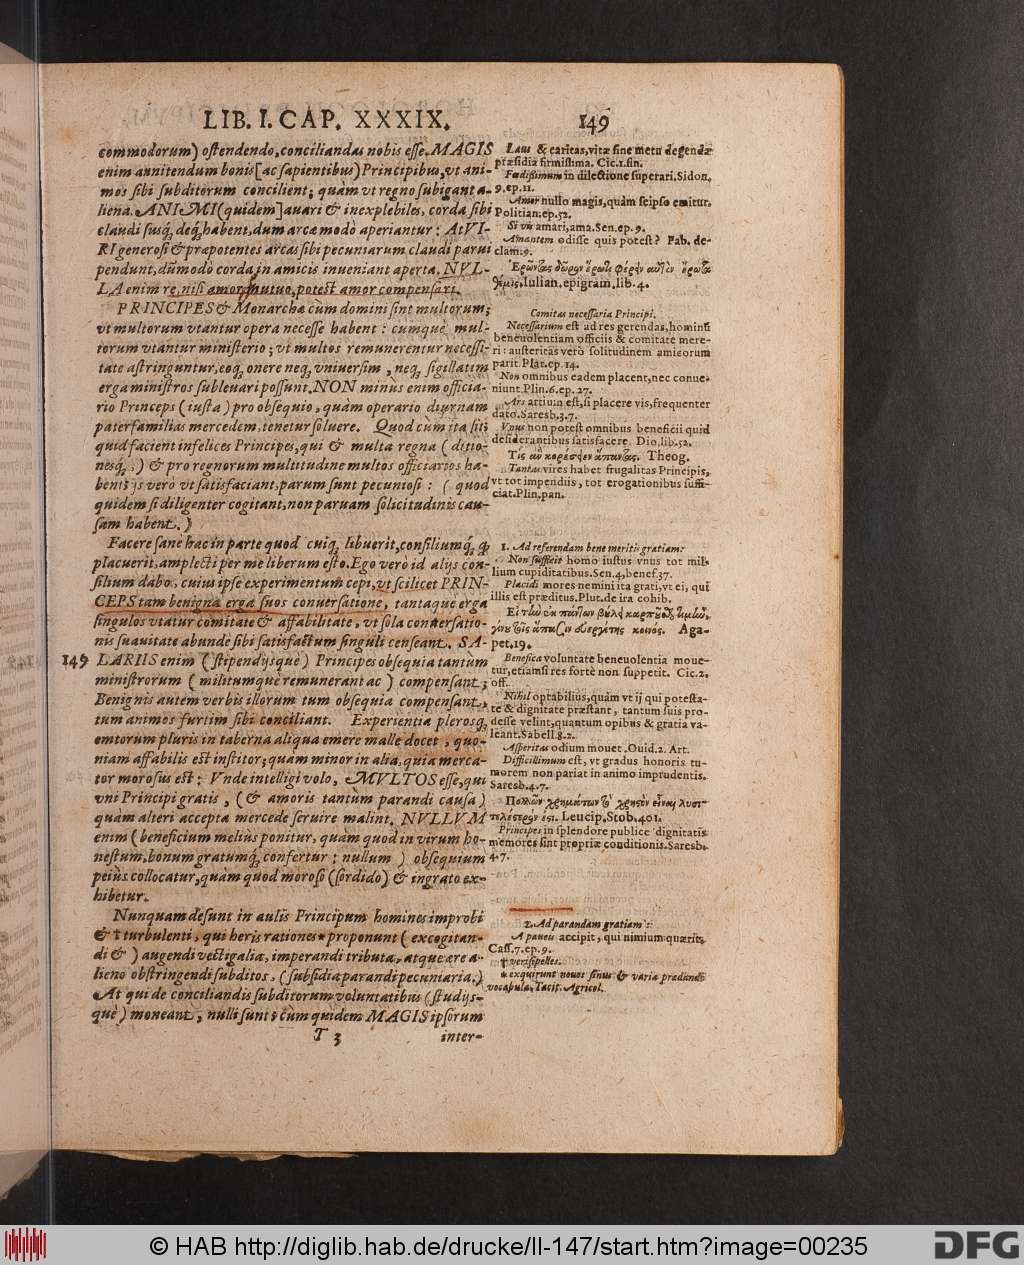 LIB. I. CAP. XXXIX. 149
commodorum) ostendendo, conciliandas nobis esse. MAGIS
enim annitendum bonis [ac sapientibus) Principibus, vt ani-
mos sibi subditorum concilient; quàm vt regno subigant a-
liena. ANIMI (quidem] auari & inexplebiles, corda sibi
claudi susq́, deq́, habent, dum arcæ modò aperiantur: At VI-
RI generosi & præpotentes arcas sibi pecuniarum claudi parui
pendunt, dũmodo corda in amicis inueniant aperta. NVL-
LA enim re, nisi amor mutuo, potest amor compensari.
PRINCIPES & Monarchæ cùm domini sint multorum;
vt multorum vtantur opera necesse habent: cumquè mul-
torum vtantur ministerio; vt multos remunerentur necessi-
tate astringuntur, eoq́, onere neq́, vniuersim, neq́, sigillatim
erga ministros subleuari possunt. NON minùs enim officia-
rio Princeps (iusta) pro obsequio, quàm operario diurnam
paterfamilias mercedem, tenetur soluere. Quod cùm ita sit;
quid facient infelices Principes, qui & multa regna (ditio-
nesq́,) & pro regnorum multitudine multos officiarios ha-
bent; ijs verò vt satisfaciant, parum sunt pecuniosi: (quod
quidem si diligenter cogitant, non paruam solicitudinis cau-
sam habent.)
Facere sanè hac in parte quod cuiq́, libuerit, consiliumq́, q
placuerit, amplecti per me liberum esto. Ego verò id alijs con-
silium dabo, cuius ipse experimentum cepi, vt scilicet PRIN-
CEPS tam benigna erga suos conuersatione, tantaque erga
singulos vtatur comitate & affabilitate, vt sola conuersatio-
nis suauitate abunde sibi satisfactum singuli censeant. SA-
149 LARIIS enim (stipendijsquè) Principes obsequia tantùm
ministrorum (militumque remunerant ac) compensant;
Benignis autem verbis illorum tum obsequia compensant,
tum animos furtim sibi conciliant. Experientia plerosq́,
emtorum pluris in taberna aliqua emere malle docet, quo-
niam affabilis est institor; quàm minor in alia, quia merca-
tor morosus est: Vnde intelligi volo, MVLTOS esse, qui
vni Principi gratis, (& amoris tantùm parandi causa)
quàm alteri accepta mercede seruire malint. NVLLVM
enim (beneficium meliùs ponitur, quàm quod in virum ho-
nestum, bonum gratumq́, confertur: nullum) obsequium
peiùs collocatur, quàm quod moroso (sordido) & ingrato ex-
hibetur.
Nunquam desunt in aulis Principum homines improbi
& † turbulenti, qui heris rationes * proponunt (excogitan-
di &) augendi vectigalia, imperandi tributa, atque ære a-
lieno obstringendi subditos, (subsidia parandi pecuniaria.)
At qui de conciliandis subditorum voluntatibus (studijs-
què) moneant, nulli sunt: cùm quidem MAGIS ipsorum
T 3 inter-
Laus & caritas, vitæ sine metu degendæ
præsidia firmissima. Cic. 1. fin.
Fœdissimum in dilectione superari. Sidon.
9. ep. 11.
Amor nullo magis, quàm seipso emitur.
Politian. ep. 52.
Si vis amari, ama. Sen. ep. 9.
Amantem odisse quis potest? Fab. de-
clam. 9.
Iulian. epigram. lib. 4.
Comitas necessaria Principi.
Necessarium est ad res gerendas, hominũ
beneuolentiam officiis & comitate mere-
ri: austeritas verò solitudinem amicorum
parit. Plat. ep. 14.
Non omnibus eadem placent, nec conue-
niunt. Plin. 6. ep. 27.
Ars artium est, si placere vis, frequenter
dato. Saresb. 3. 7.
Vnus non potest omnibus beneficii quid
desiderantibus satisfacere. Dio, lib. 52.
Theog.
Tantas vires habet frugalitas Principis,
vt tot impendiis, tot erogationibus suffi-
ciat. Plin. pan.
1. Ad referendam bene meritis gratiam:
Non sufficit homo iustus vnus tot mil-
lium cupiditatibus. Sen. 4. benef. 37.
Placidi mores nemini ita grati, vt ei, qui
illis est præditus. Plut. de ira cohib.
Aga-
pet. 19.
Benefica voluntate beneuolentia moue-
tur, etiamsi res fortè non suppetit. Cic. 2.
off.
Nihil optabilius, quàm vt ij qui potesta-
te & dignitate præstant, tantum suis pro-
desse velint, quantum opibus & gratia va-
leant. Sabell. 8. 2.
Asperitas odium mouet. Ouid. 2. Art.
Difficillimum est, vt gradus honoris tu-
morem non pariat in animo imprudentis.
Saresb. 4. 7.
Leucip. Stob. 401.
Principes in splendore publicę dignitatis
memores sint propriæ conditionis. Saresb.
4. 7.
2. Ad parandam gratiam:
A paucis accipit, qui nimium quærit.
Cass. 7. ep. 9.
† versipelles.
* exquirunt nouos sinus & varia prædandi
vocabula. Tacit. Agricol.
© HAB http://diglib.hab.de/drucke/ll-147/start.htm?image=00235
DFG